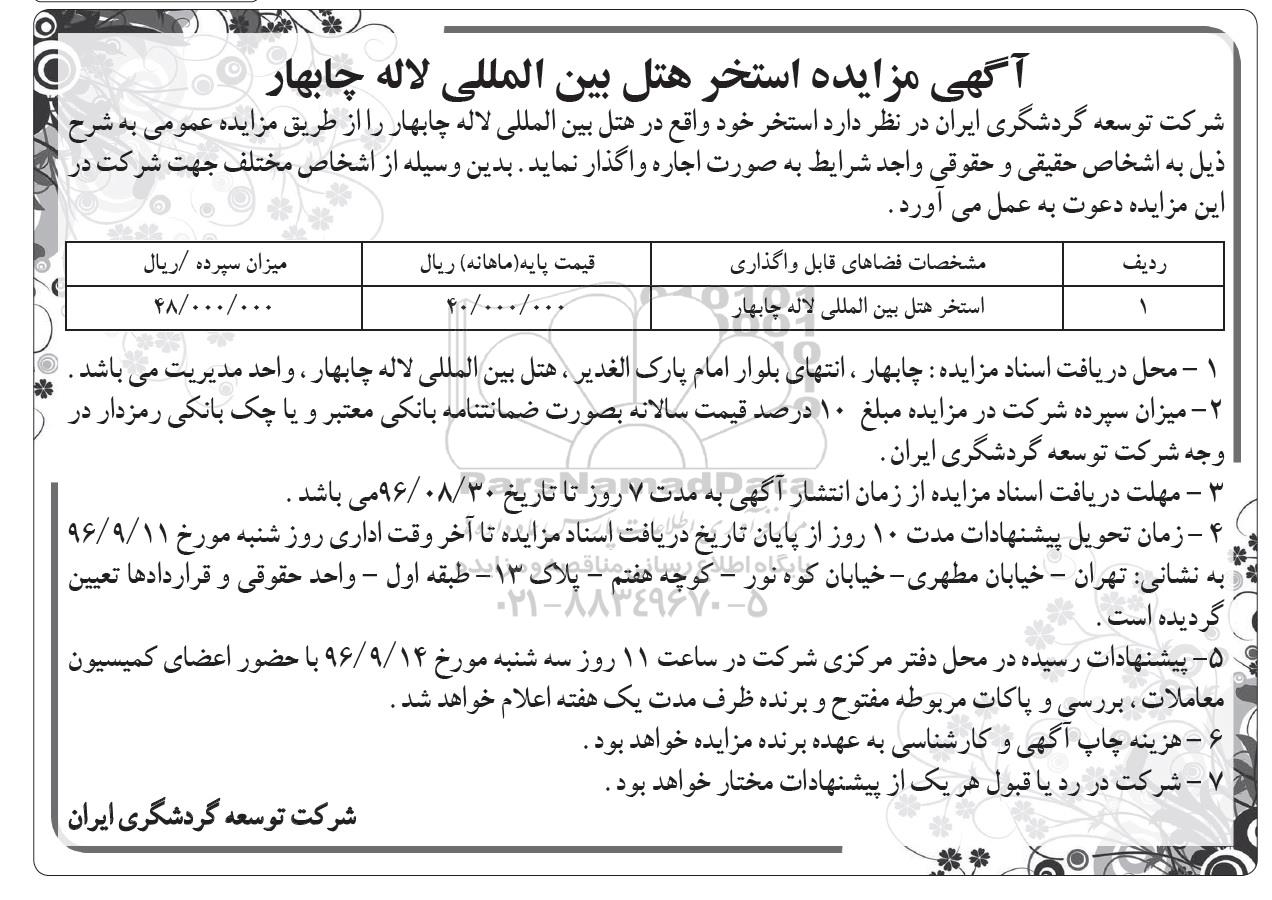 آگهی مزایده استخر هتل بین المللی لاله چابهار
شرکت توسعه گردشگری ایران در نظر دارد استخر خود واقع در هتل بین المللی لاله چابهار را از طریق مزایده عمومی به شرح
ذیل به اشخاص حقیقی و حقوقی واجد شرایط به صورت اجاره واگذار نماید . بدین وسیله از اشخاص مختلف جهت شرکت در
این مزایده دعوت به عمل می آورد .
ردیف مشخصات فضاهای قابل واگذاری قیمت پایه(ماهانه) ریال میزان سپرده /ریال
۱ استخر هتل بین المللی لاله چابهار ۴۰/۰۰۰/۰۰۰ ۴۸/۰۰۰/۰۰۰
۱ – محل دریافت اسناد مزایده : چابهار ، انتهای بلوار امام پارک الغدیر ، هتل بین المللی لاله چابهار ، واحد مدیریت می باشد .
۲- میزان سپرده شرکت در مزایده مبلغ ۱۰ درصد قیمت سالانه بصورت ضمانتنامه بانکی معتبر و یا چک بانکی رمزدار در
وجه شرکت توسعه گردشگری ایران .
۳ – مهلت دریافت اسناد مزایده از زمان انتشار آگهی به مدت ۷ روز تا تاریخ ۹۶/۰۸/۳۰می باشد .
۴ – زمان تحویل پیشنهادات مدت ۱۰ روز از پایان تاریخ دریافت اسناد مزایده تا آخر وقت اداری روز شنبه مورخ ۹۶/۹/۱۱
به نشانی: تهران – خیابان مطهری– خیابان کوه نور – کوچه هفتم – پلاک ۱۳– طبقه اول – واحد حقوقی و قراردادها تعیین
گردیده است .
۵– پیشنهادات رسیده در محل دفتر مرکزی شرکت در ساعت ۱۱ روز سه شنبه مورخ ۹۶/۹/۱۴ با حضور اعضای کمیسیون
معاملات ، بررسی و پاکات مربوطه مفتوح و برنده ظرف مدت یک هفته اعلام خواهد شد .
۶ –هزینه چاپ آگهی و کارشناسی به عهده برنده مزایده خواهد بود .
۷ – شرکت در رد یا قبول هر یک از پیشنهادات مختار خواهد بود .
شرکت توسعه گردشگری ایران
ParsNamadData
پایگاه اطلاع رسانی مناقصه و مزایده
۰۲۱–۸۸۳۴۹۶۷۰–۵